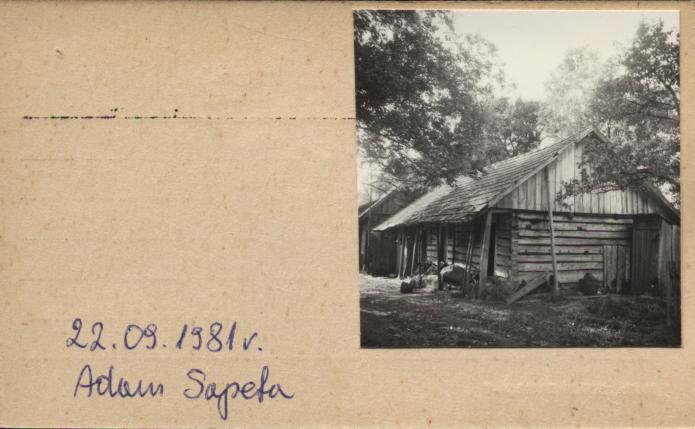 22.09.1981r.
Adam Sapeta